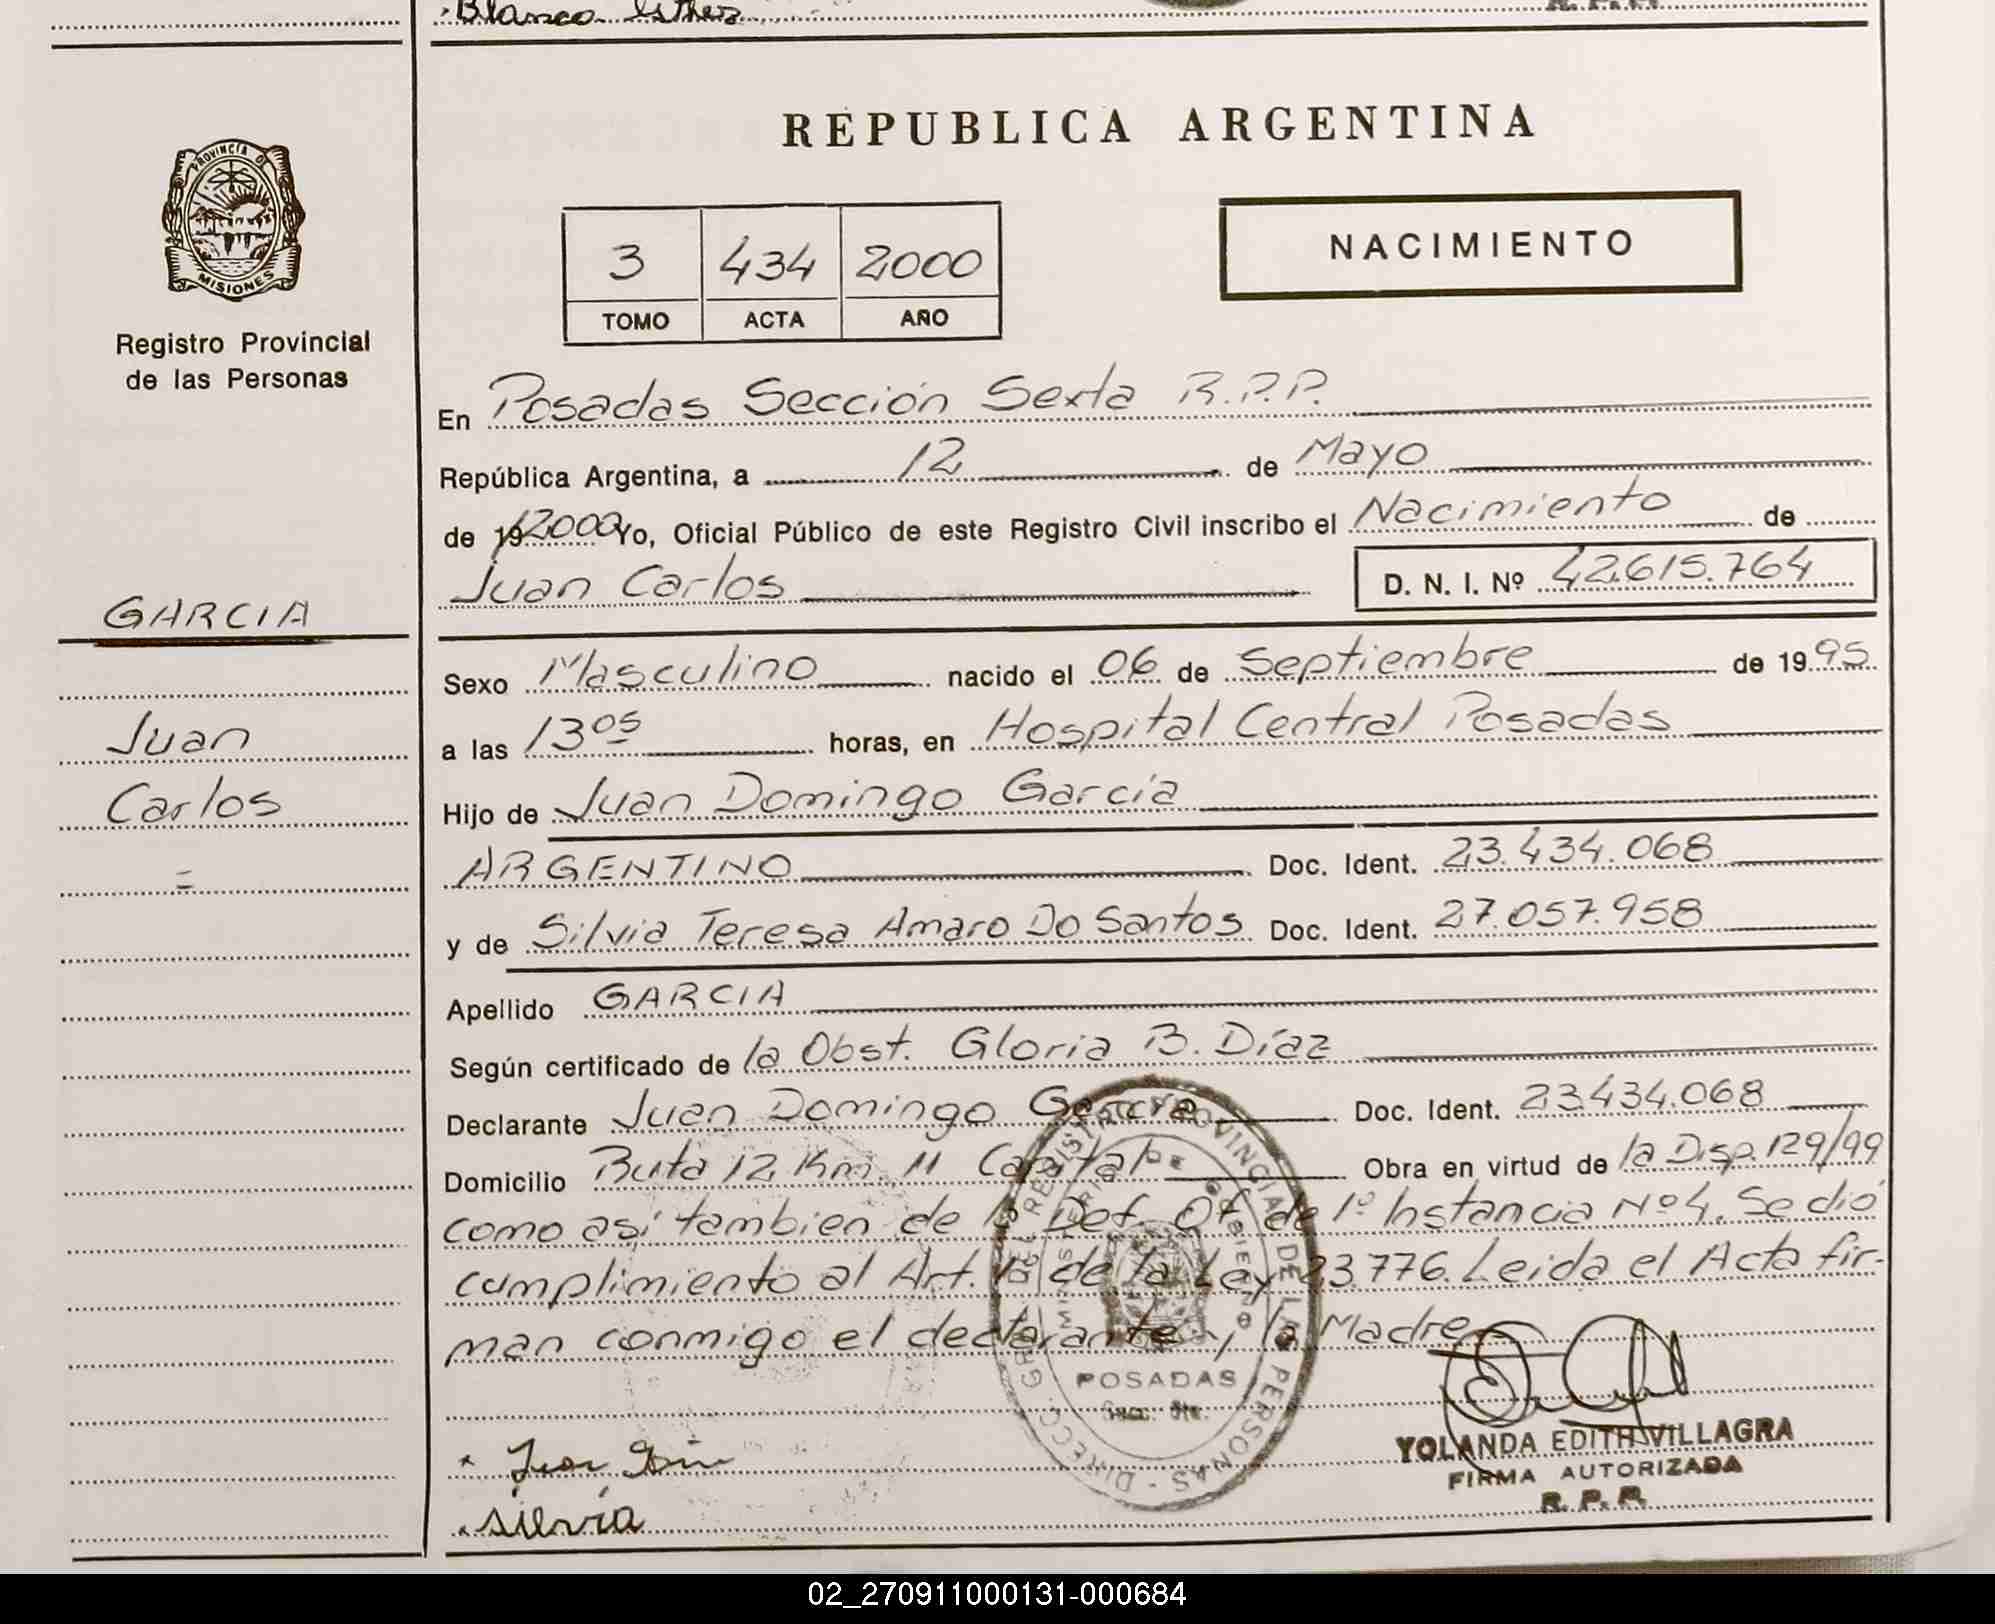 Blanco Esther
R.P.P.
REPUBLICA ARGENTINA
PROVINCIA DE
MISIONES
Registro Provincial
de las Personas
NACIMIENTO
3 434 2000
TOMO ACTA AÑO
En Posadas Sección Sexta R.P.P.
República Argentina, a 12 de Mayo
de 19 2000 Yo, Oficial Público de este Registro Civil inscribo el Nacimiento de
Juan Carlos D. N. I. Nº 42.615.764
GARCIA
Juan
Carlos
=
Sexo Masculino nacido el 06 de Septiembre de 19 95
a las 13 05 horas, en Hospital Central Posadas
Hijo de Juan Domingo García
ARGENTINO Doc. Ident. 23.434.068
y de Silvia Teresa Amaro Do Santos Doc. Ident. 27.057.958
Apellido GARCIA
Según certificado de la Obst. Gloria B. Díaz
Declarante Juan Domingo García Doc. Ident. 23.434.068
Domicilio Ruta 12 Km. 11 Capital Obra en virtud de la Disp. 129/99
como así tambien de la Def. Of. de 1º Instancia Nº 4. Se dió
cumplimiento al Art. 1º de la Ley 23.776. Leida el Acta fir-
man conmigo el declarante y la Madre
DIRECC. GRAL. DEL REGISTRO PROVINCIAL DE LAS PERSONAS
MINISTERIO DE GOBIERNO
POSADAS
YOLANDA EDITH VILLAGRA
FIRMA AUTORIZADA
R. P. P.
Silvia
02_270911000131-000684